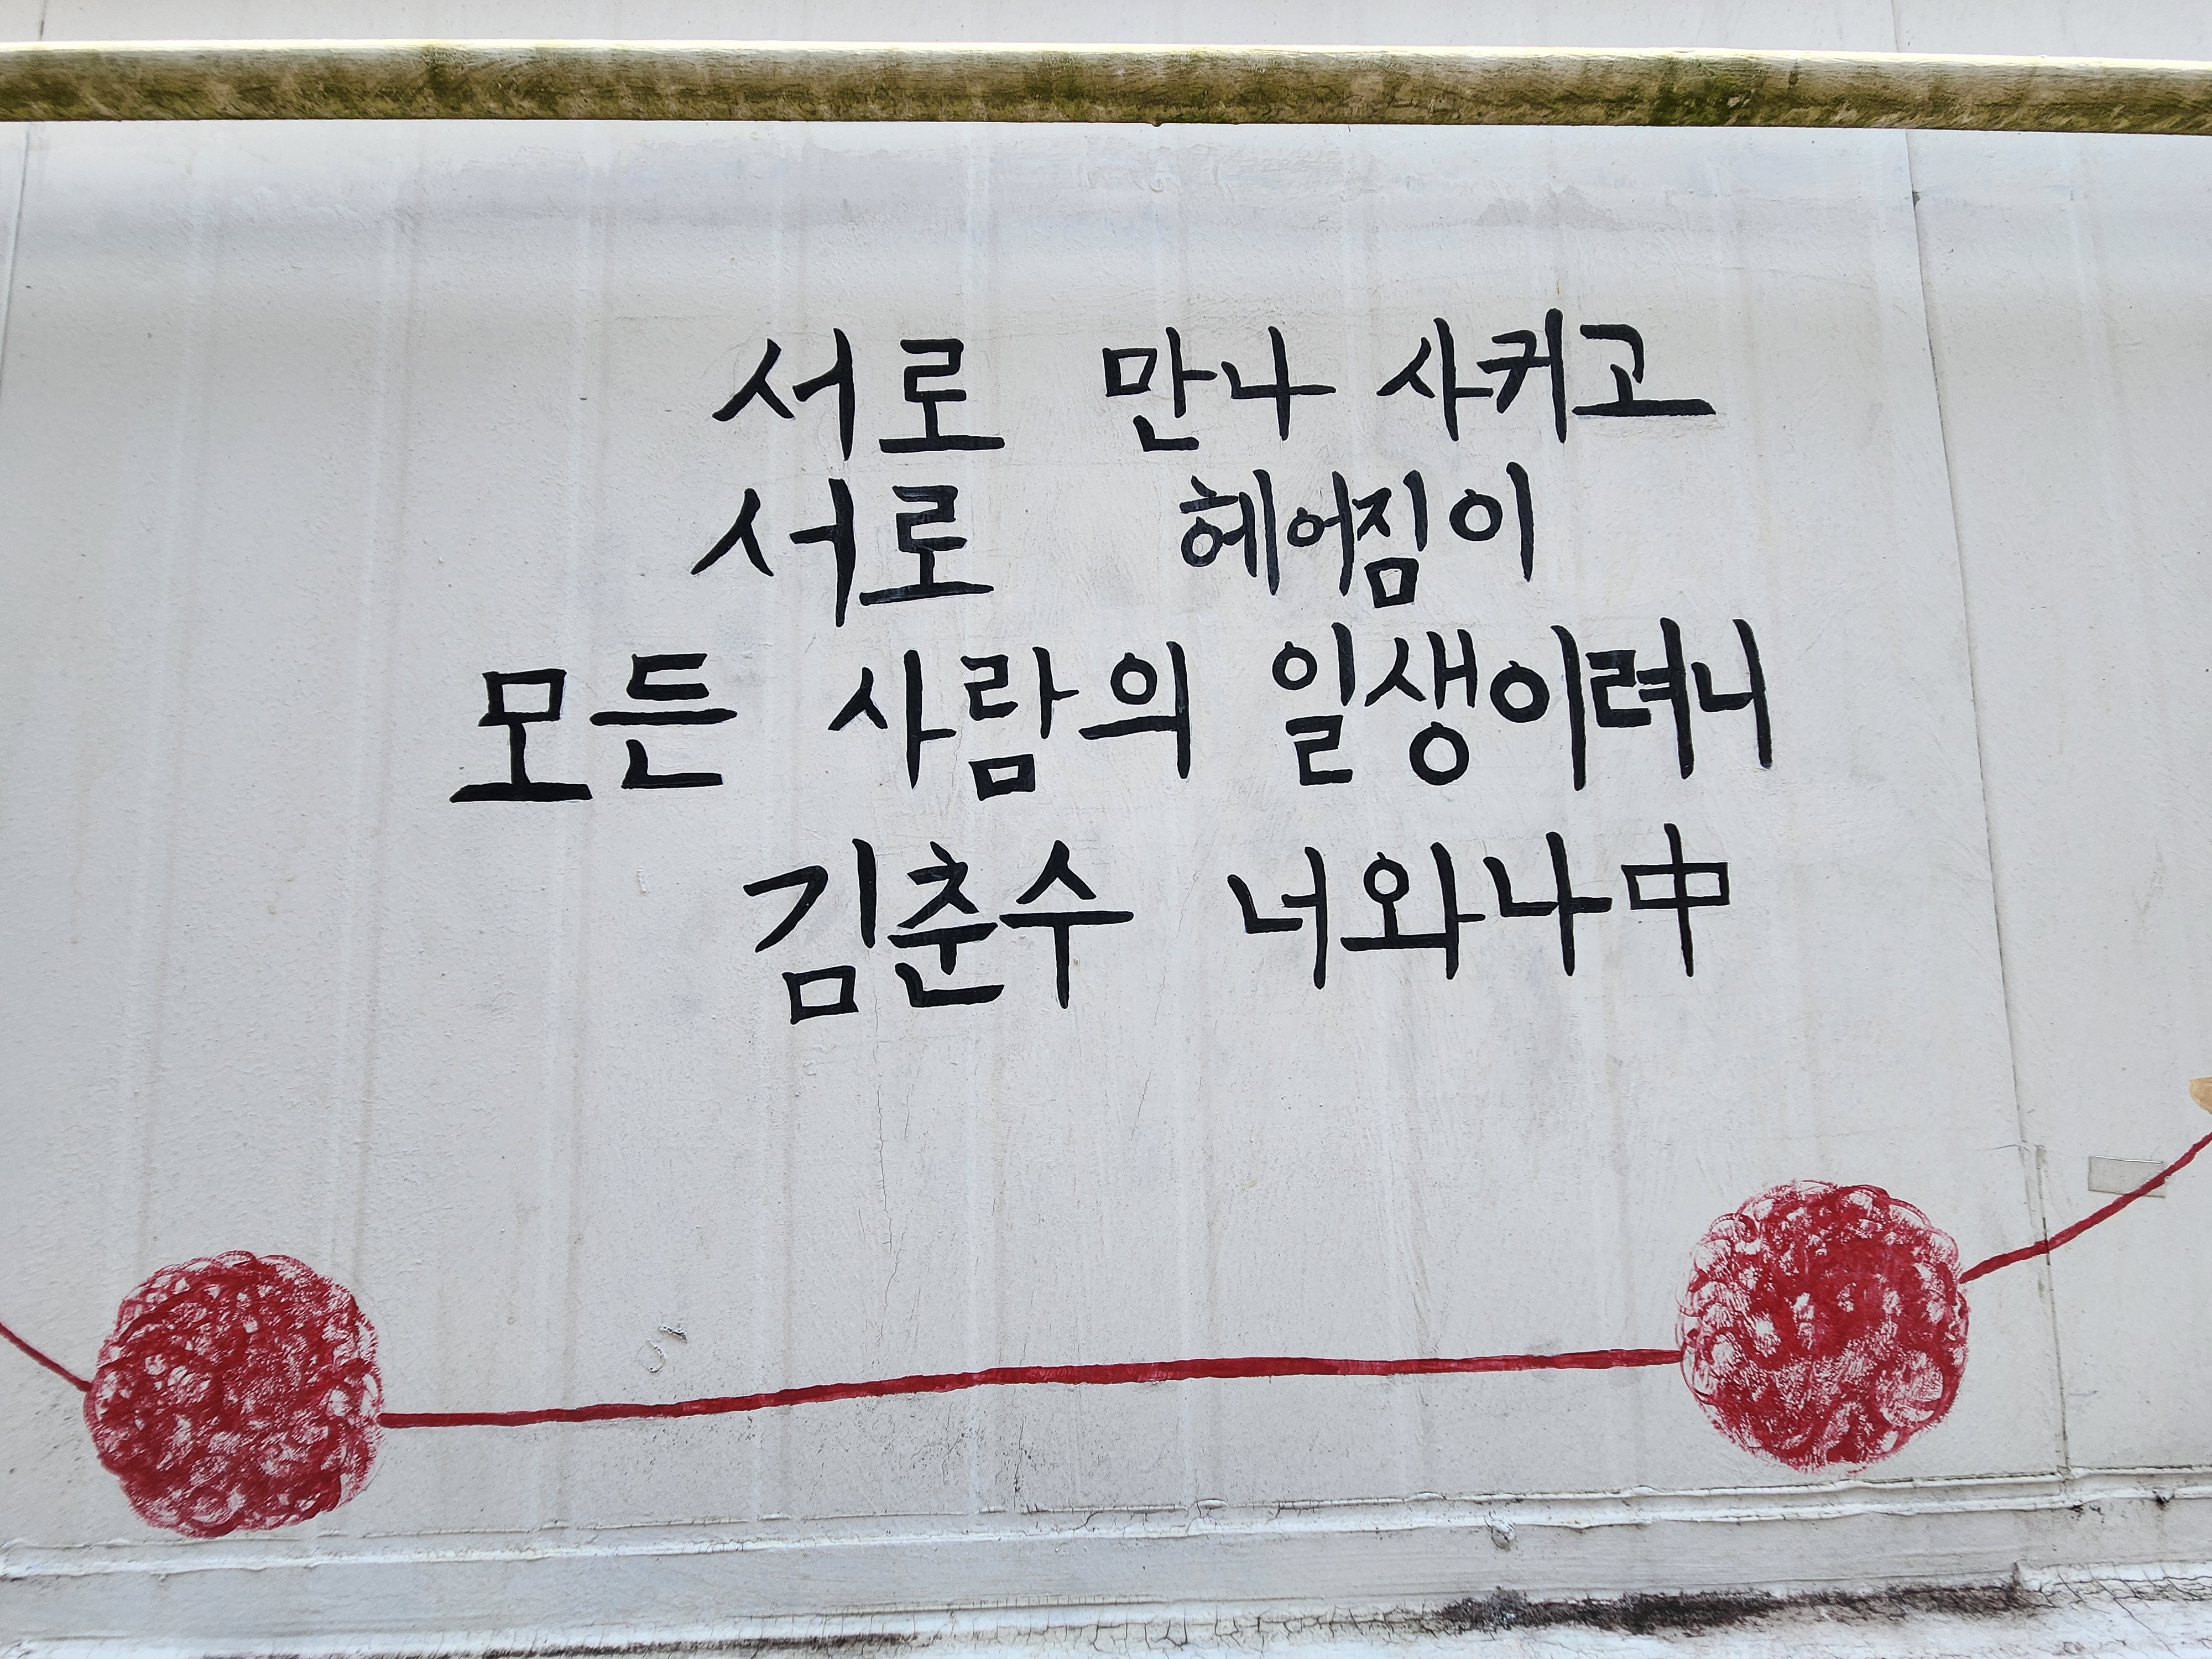 서로 만나 사귀고
서로 헤어짐이
모든 사람의 일생이려니
김춘수 너와나中